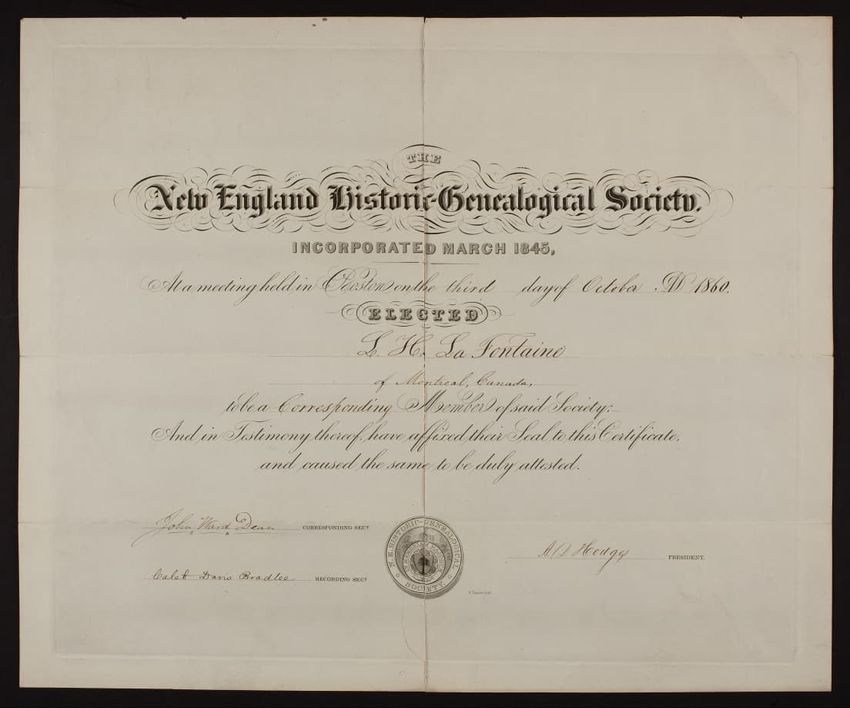 THE
New England Historic-Genealogical Society.
INCORPORATED MARCH 1845,
At a meeting held in Boston on the third day of October AD 1860.
ELECTED
L. H. La Fontaine
of Montreal, Canada,
to be a Corresponding Member of said Society:
And in Testimony thereof, have affixed their Seal to this Certificate,
and caused the same to be duly attested.
John Ward Dean CORRESPONDING SECY.
N.E. HISTORIC-GENEALOGICAL SOCIETY
PRESIDENT.
Caleb Davis Bradlee RECORDING SECY.